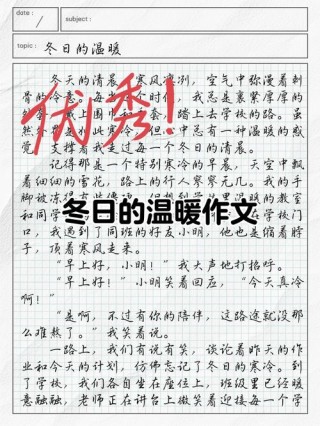 date:
subject:
topic: 冬日的温暖
冬天的清晨，寒风凛冽，空气中弥漫着刺
骨的冷
时
我总是裹紧厚厚的
上围巾
套，踏上去学校的路。虽
此寒冷
中总有一种温暖的感
觉，支撑着我走过每一个冬日的清晨。
记得那是一个特别寒冷的早晨，天空中飘
着细细的雪花，路上的行人寥寥无几。我的手
脚被冻
的教室
和同学
学校门
口，我遇到了同班的好友小明，他也是缩着脖
子，顶着寒风走来。
“早上好，小明！”我大声地打招呼。
“早上好！”小明笑着回应，“今天真冷
啊！”
“是啊，不过有你的陪伴，这路途就没那
么难熬了。”我笑着说。
一路上，我们有说有笑，谈论着昨天的作
业和今天的计划，仿佛忘记了冬日的寒冷。到
了学校，我们各自坐在座位上，班级里已经暖
意融融，老师正在讲台上微笑着迎接每一个学
优秀！
冬日的温暖作文